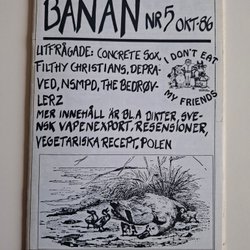 BANAN NR 5 OKT-86
UTFRÅGADE: CONCRETE SOX,
FILTHY CHRISTIANS, DEPRA-
VED, NSMPD, THE BEDRØV-
LERZ
I DON'T EAT
MY FRIENDS
MER INNEHÅLL ÄR BLA DIKTER, SVE-
NSK VAPENEXPORT, RESENSIONER,
VEGETARISKA RECEPT, POLEN